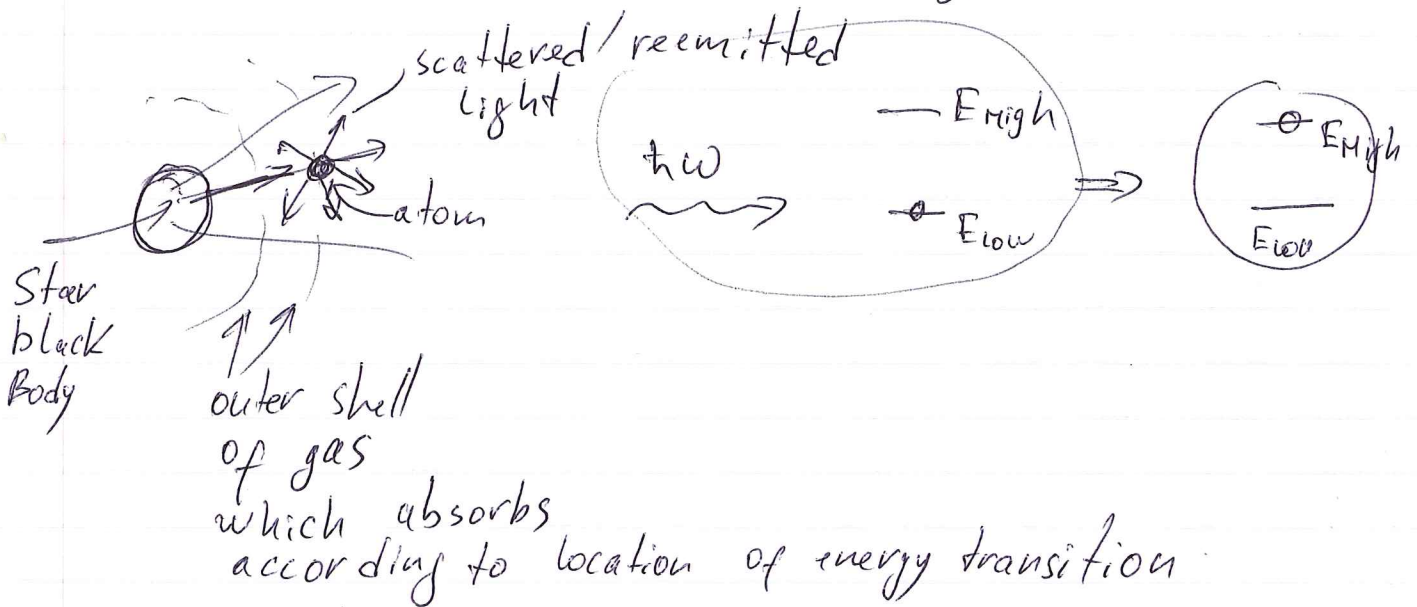 scattered/reemitted
light
atom
Star
black
Body
outer shell
of gas
which absorbs
according to location of energy transition
ħω
E_High
E_Low
E_High
E_Low